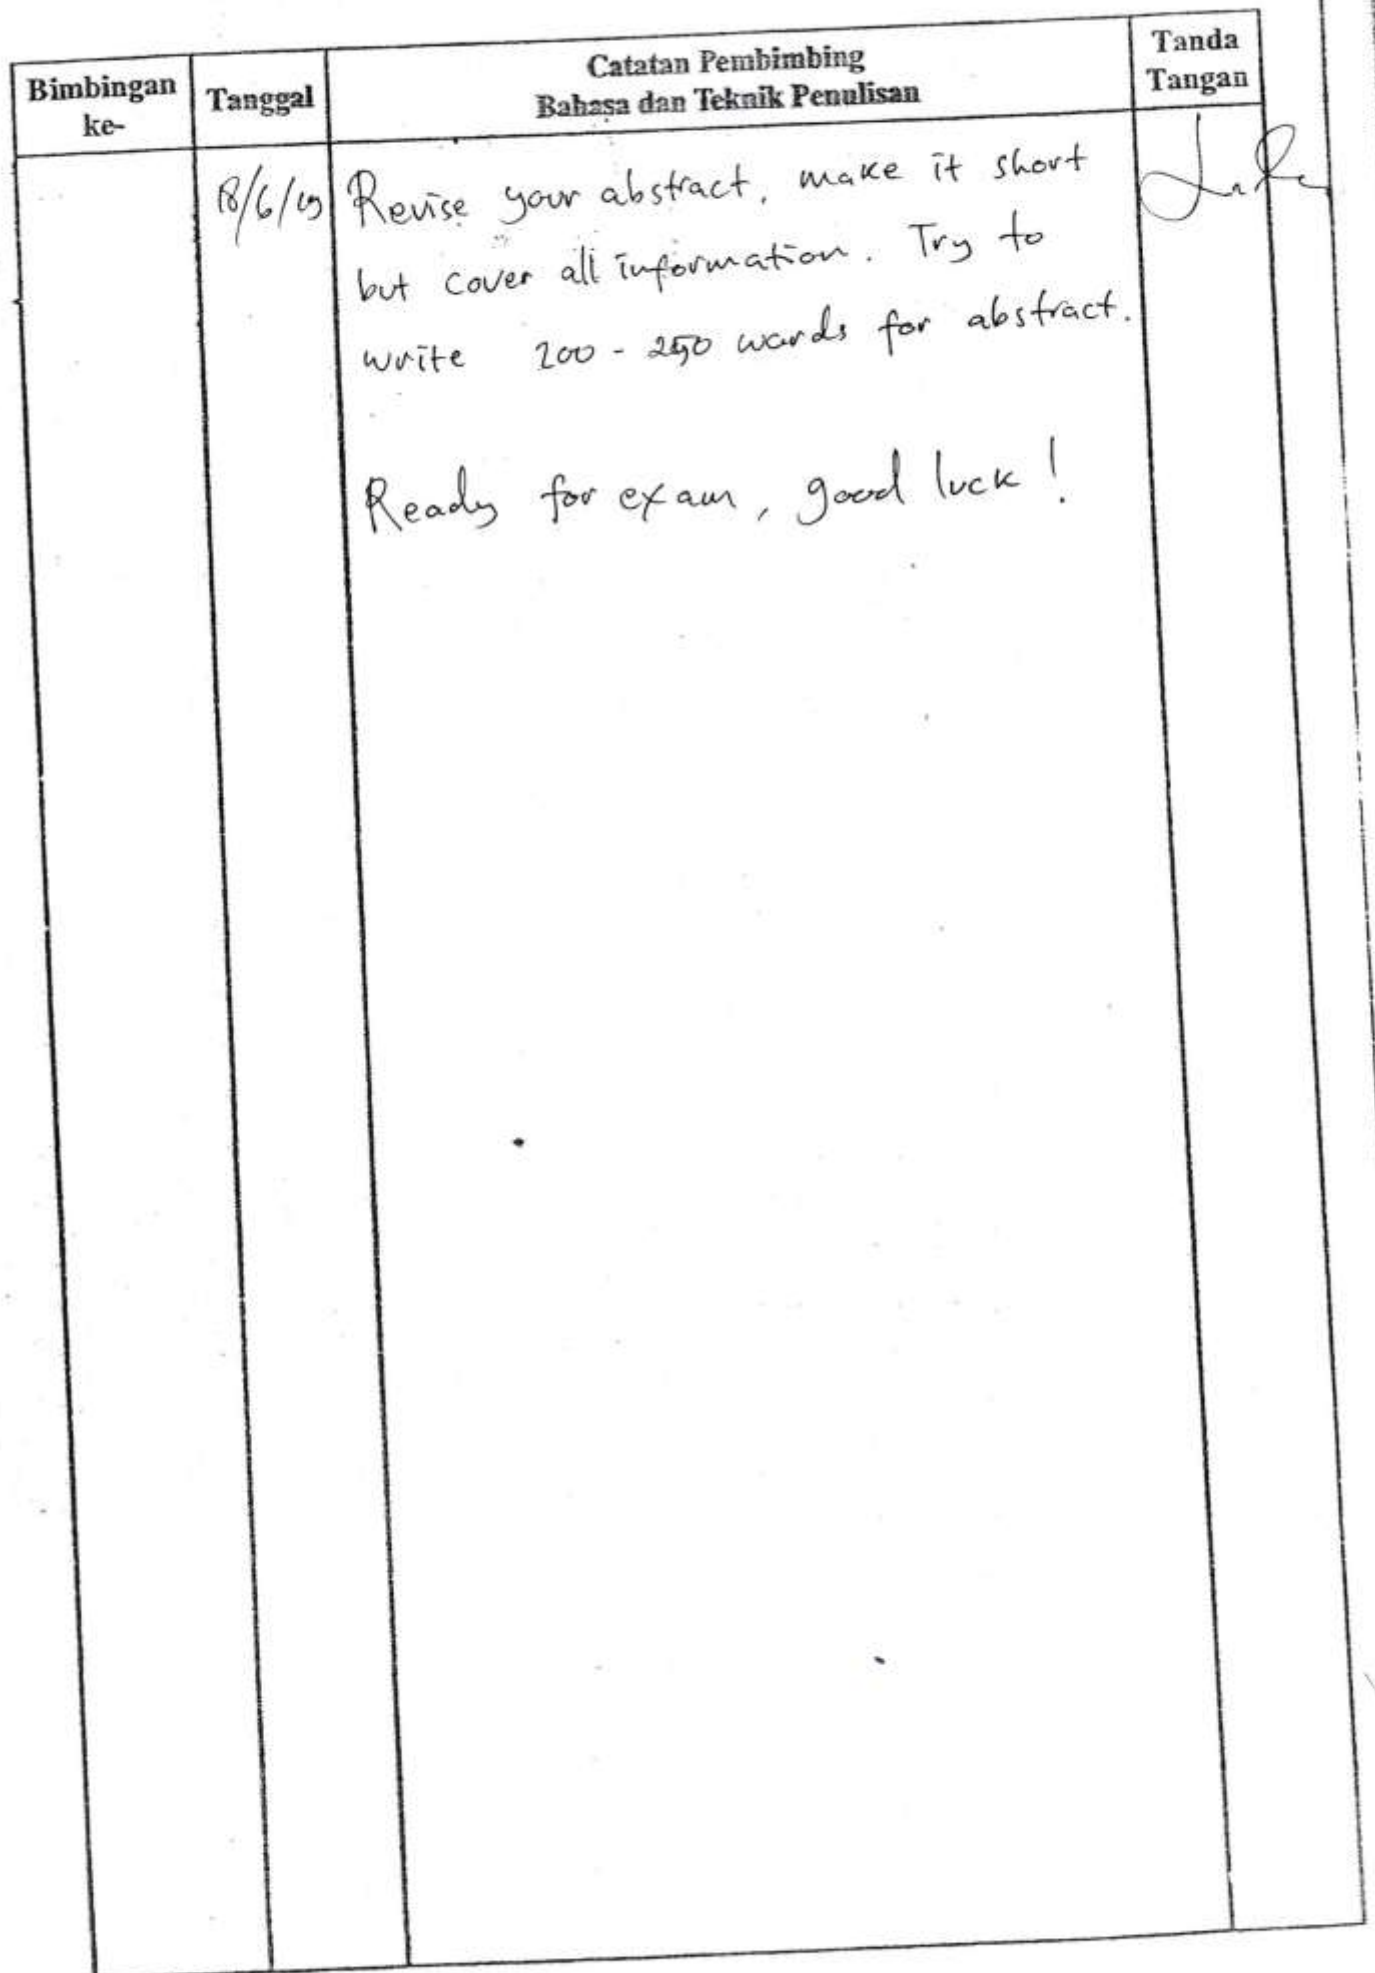 Bimbingan ke-
Tanggal
Catatan Pembimbing
Bahasa dan Teknik Penulisan
Tanda Tangan
18/6/19
Revise your abstract, make it short
but cover all information. Try to
write 200 - 250 words for abstract.
Ready for exam, good luck!